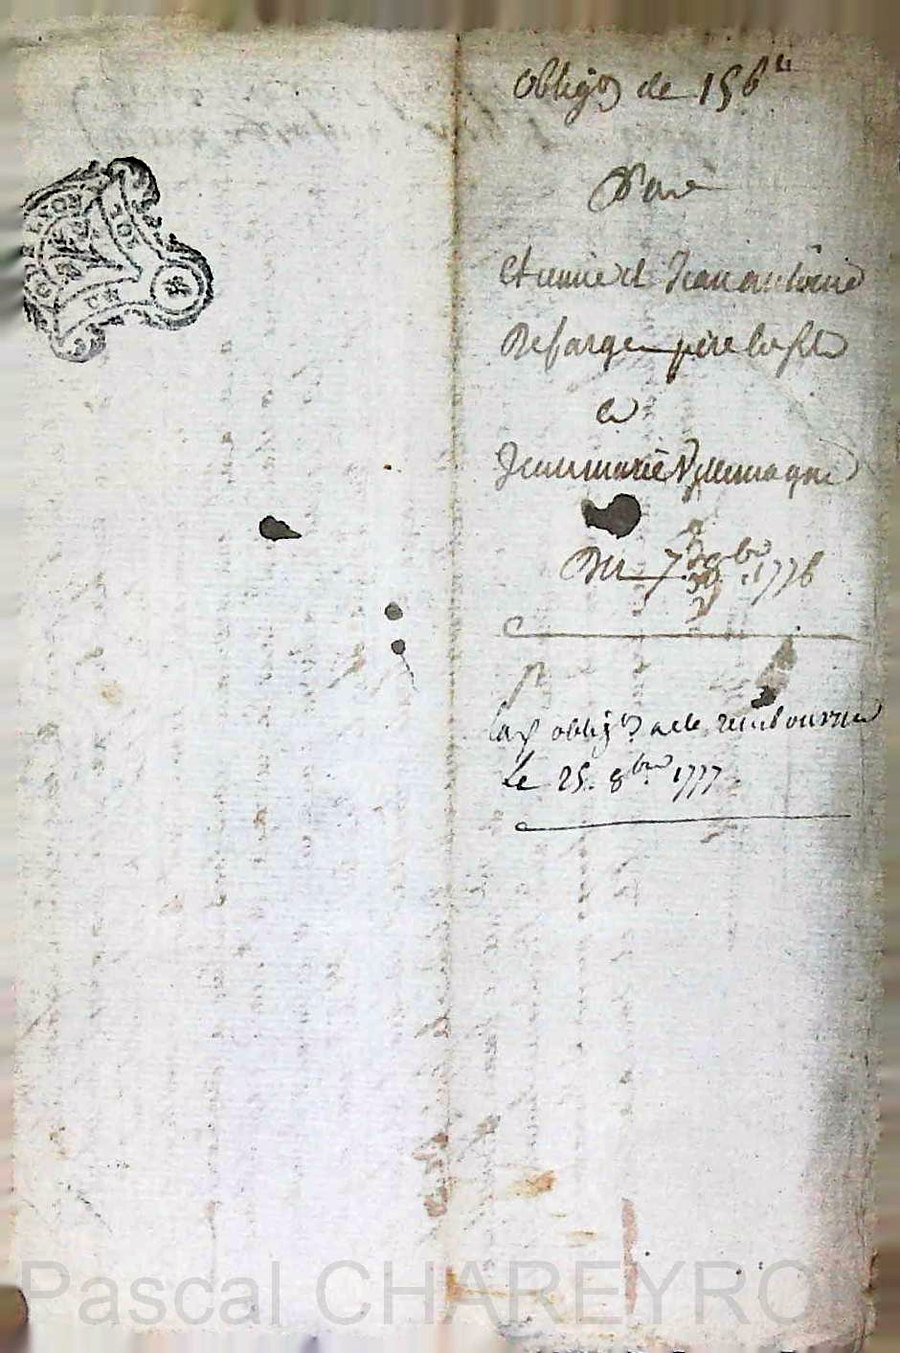 LYON
SOL
oblig.on de 156 ll
Pour
Etienne et Jean antoine
Defarge père et fils
a
Jean marie Vyllemagne
Du 7 bre 1776
oblig.on a ete rembource
Le 25. 8bre 1777.
Pascal CHAREYRON